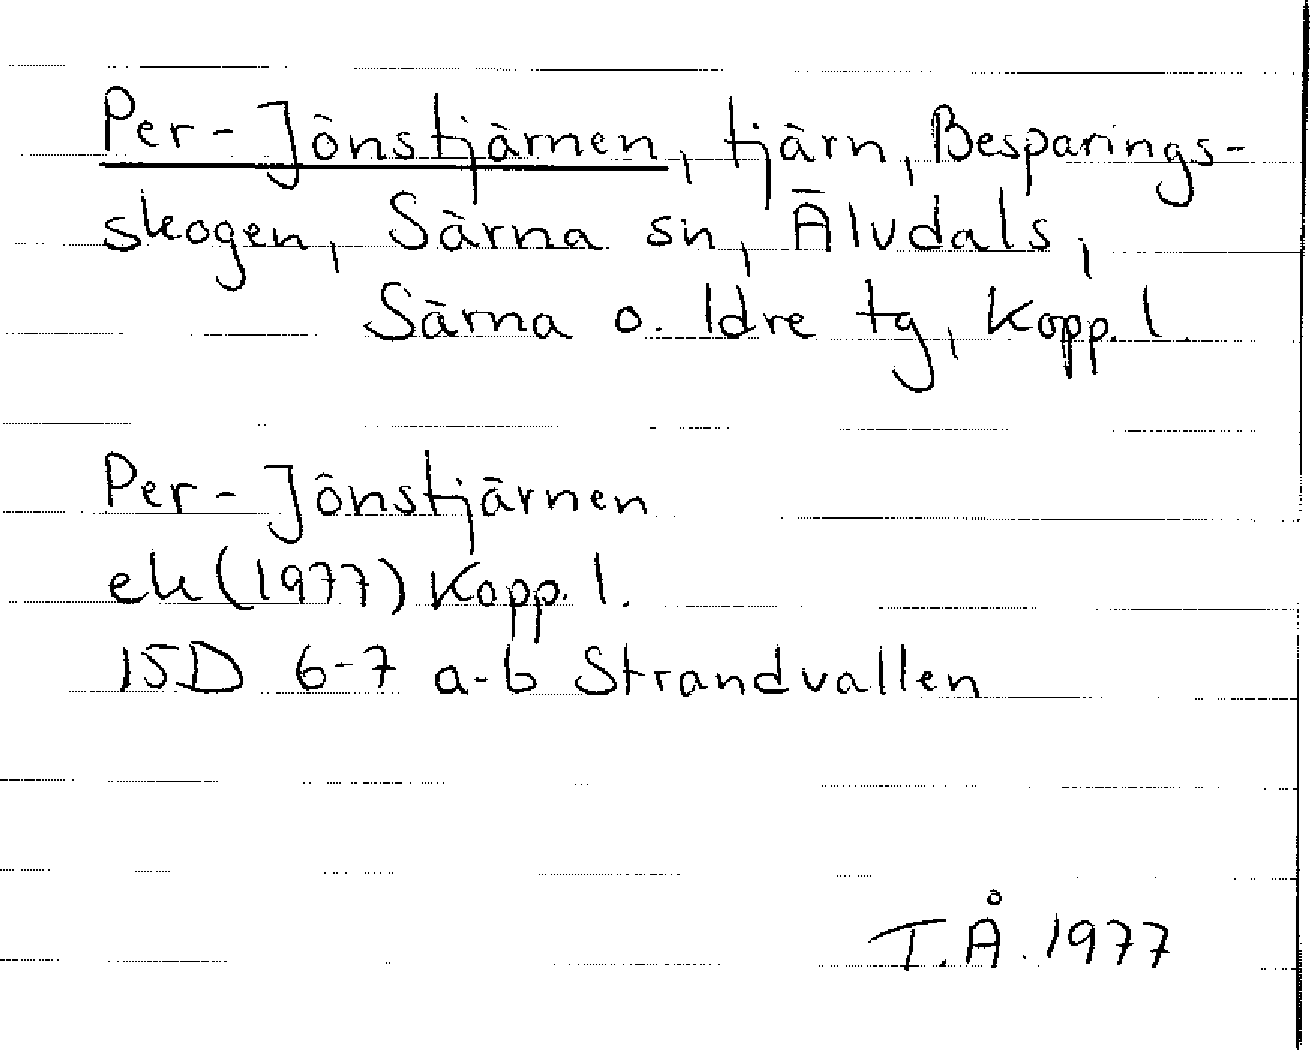 Per-Jönstjärnen, tjärn, Besparings-
skogen, Särna sn, Älvdals,
Särna o. Idre tg, Kopp. l.
Per-Jönstjärnen
ek (1977) Kopp. l.
15D 6-7 a-b Strandvallen
T.Å. 1977